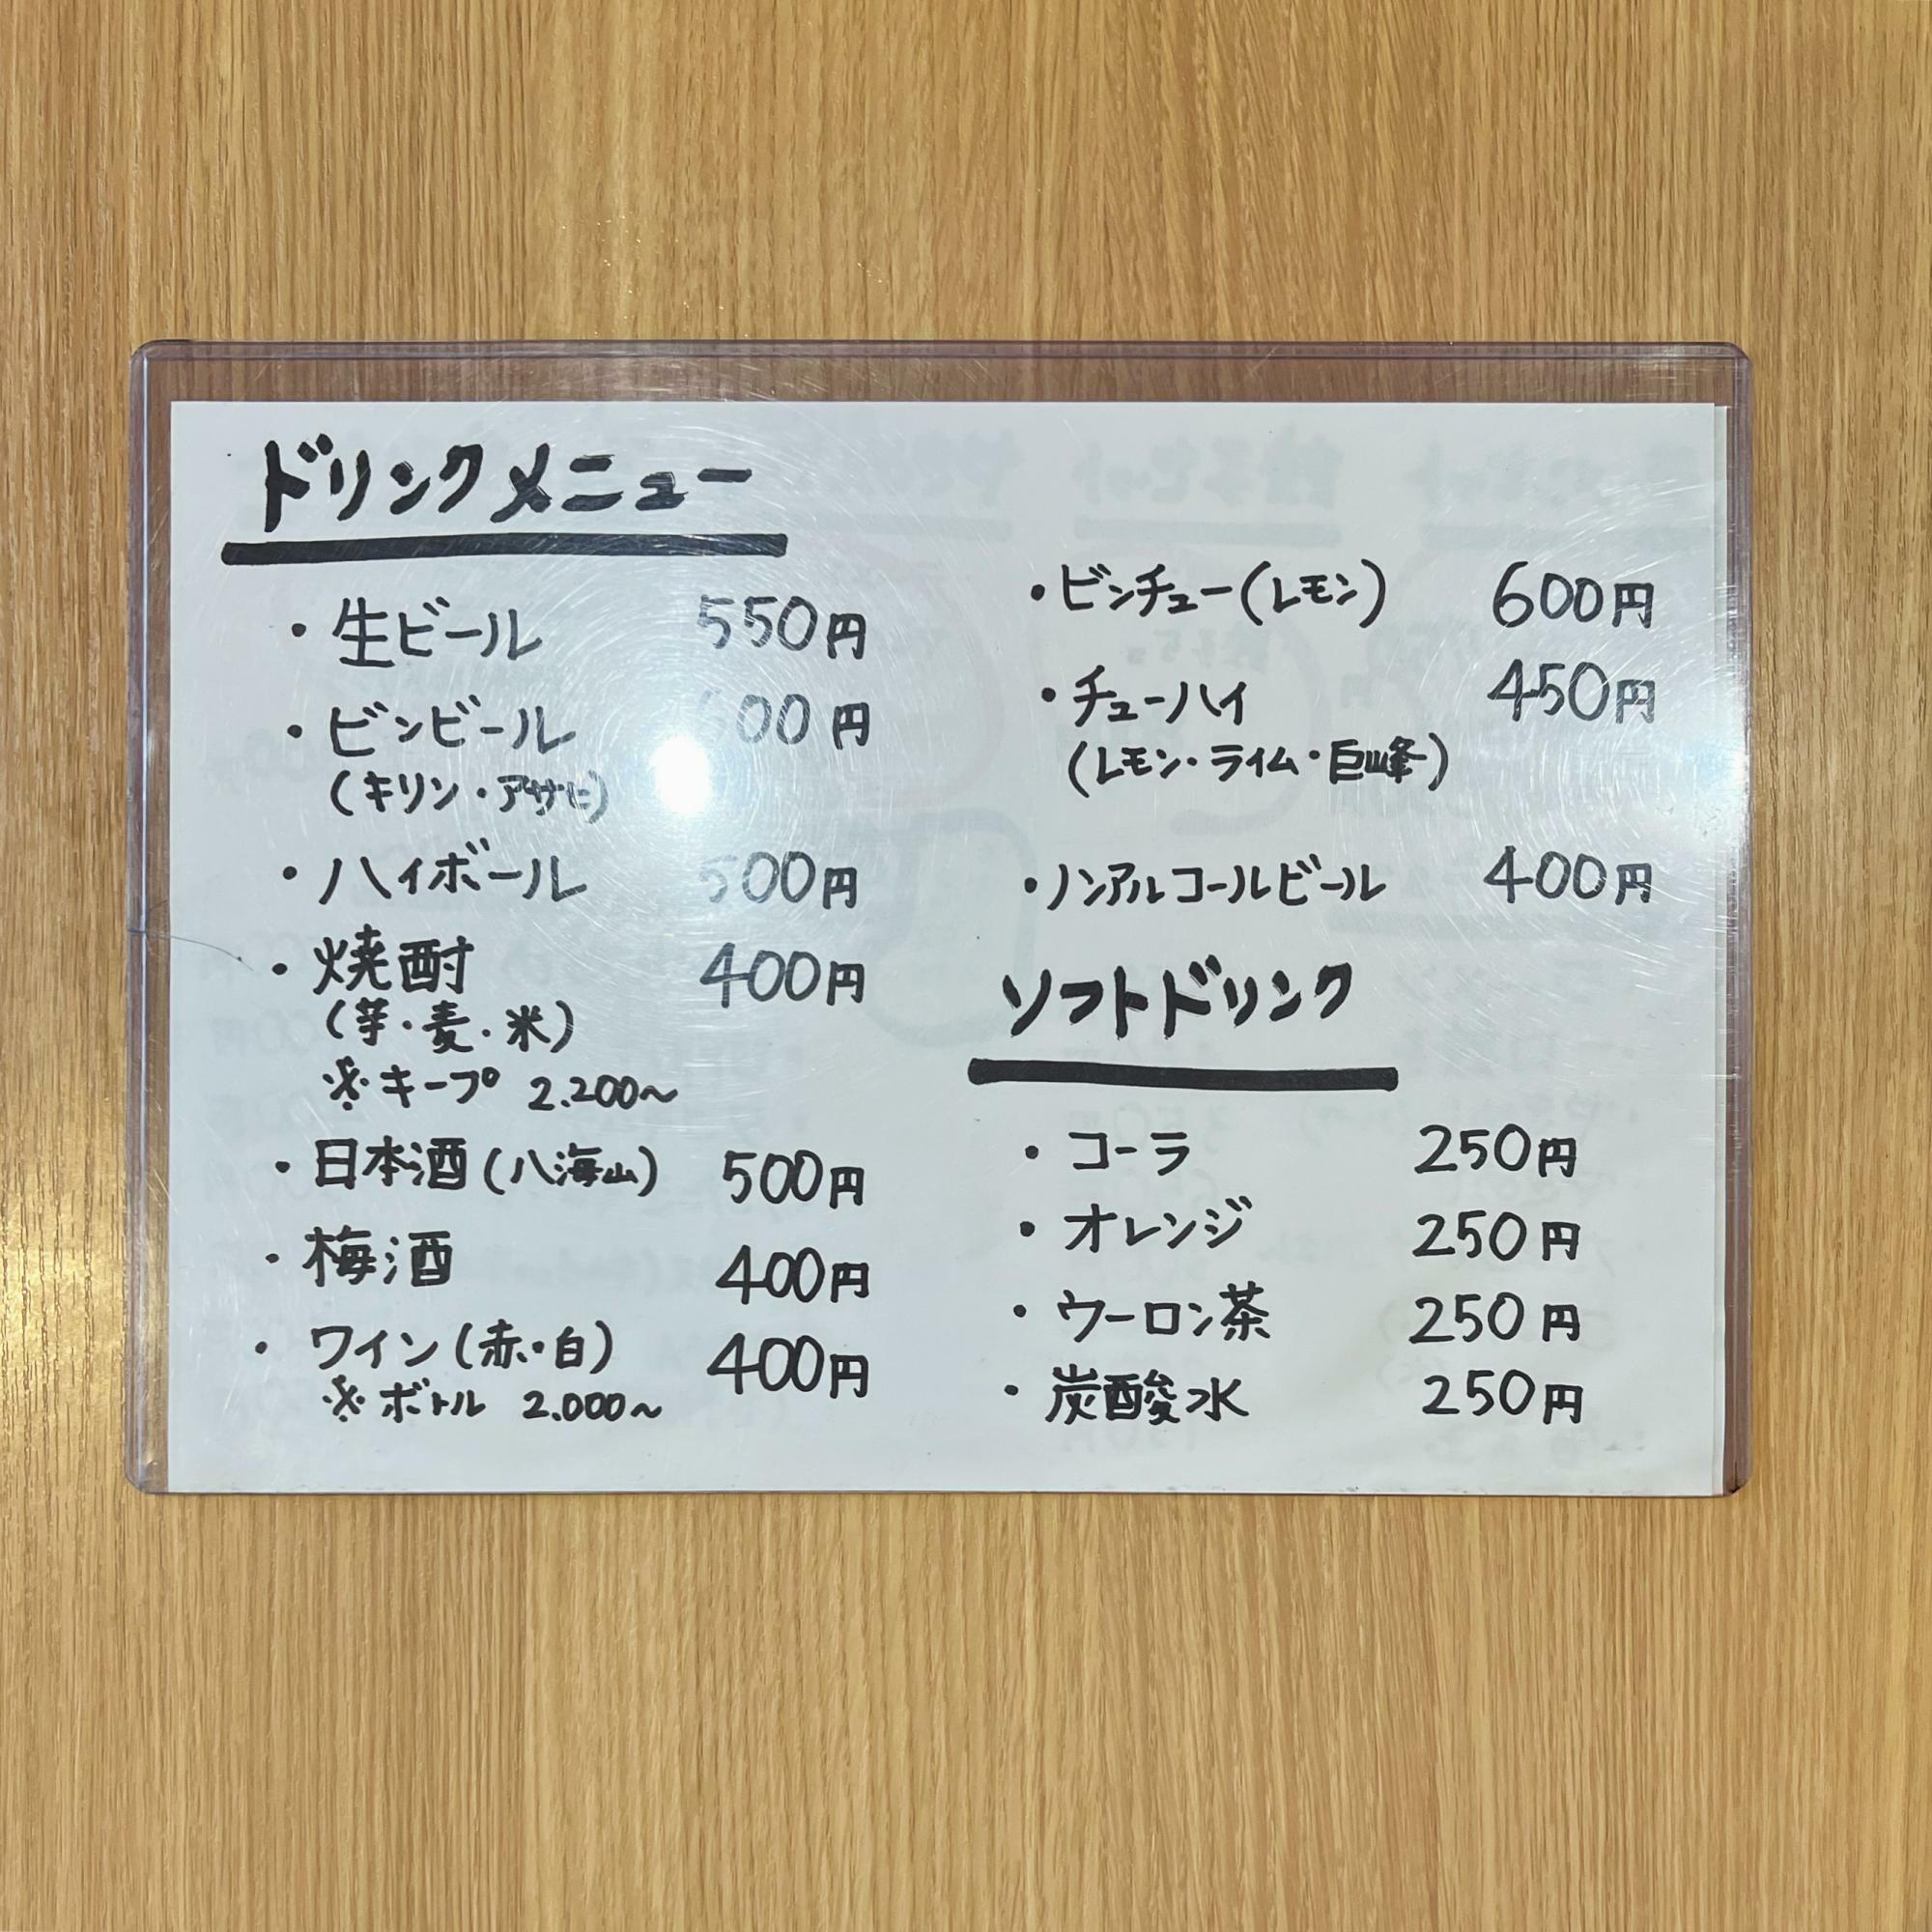 ドリンクメニュー
・生ビール 550円
・ビンビール 600円
(キリン・アサヒ)
・ハイボール 500円
・焼酎 400円
(芋・麦・米)
※キープ 2.200〜
・日本酒(八海山) 500円
・梅酒 400円
・ワイン(赤・白) 400円
※ボトル 2.000〜
・ビンチュー(レモン) 600円
・チューハイ 450円
(レモン・ライム・巨峰)
・ノンアルコールビール 400円
ソフトドリンク
・コーラ 250円
・オレンジ 250円
・ウーロン茶 250円
・炭酸水 250円